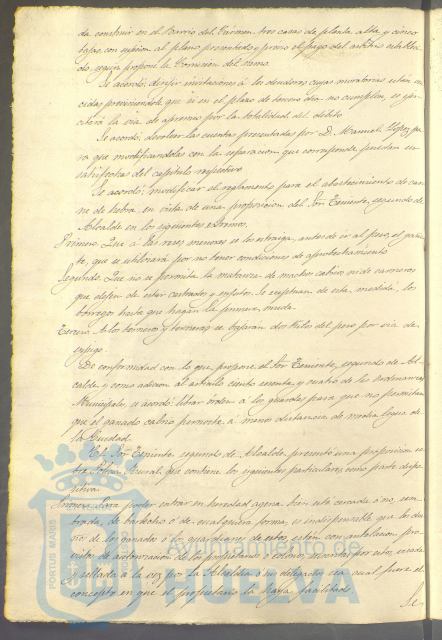 da construir en el Barrio del Cármen tres casas de planta alta y cinco
bajas, con sujecion al plano presentado y previo el pago del arbitrio estableci-
do, segun propone la Comision del ramo.
Se acordó; dirijir invitaciones á los deudores cuyas moratorias estan ven-
cidas previniendole que si en el plazo de tercero dia no cumplen, se ejer-
citará la via de apremio por la totalidad del débito
Se acordó; devolver las cuentas presentadas por D. Manuel Lopez pa-
ra que modificandolas con la separacion que corresponde, puedan ser
satisfechas del capitulo respectivo
Se acordó; modificar el reglamento para el abastecimiento de car-
ne de hebra, en vista de una proposicion del Sor Teniente, segundo de
Alcalde en los siguientes estremos.
Primero. Que á las reses menores se les estraiga, antes de ir al peso, el gaznate,
que se utilizará por no tener condiciones de aprovechamiento
Segundo. Que no se permita la matanza de machos cabrios ni de carneros
que dejen de estar castrados y enjutos. Se exceptuan de esta medida, los
borregos hasta que hagan la primera muda.
Tercero. A los terneros y terneras se bajarán dos kilos del peso por via de
enjugo.
De conformidad con lo que propone el Sor Teniente, segundo de Al-
calde y como adicion al artículo ciento sesenta y cuatro de las ordenanzas
Municipales, se acordó: librar orden á los guardas para que no permitan
que el ganado cabrio pernocte á menor distancia de media legua de
la Ciudad.
El Sor Teniente segundo de Alcalde, presentó una proposicion so-
bre Policia Rural, que contiene los siguientes particulares como parte dispo-
sitiva.
Primero. Para poder entrar en heredad agena, bien este cercada ó no, sem-
brada, de barbecho ó de cualquiera forma, es indispensable que los due-
ños de los ganados ó los guardianes de estos, esten con antelacion pro-
vistos de autorizacion de los propietarios ó colonos, escritas por estos, visada
y sellada á la vez por la Alcaldia ó su delegacion sea cual fuere el
concepto en que el propietario la haya facilitado
Se
PORTUS MARIS
Ayuntamiento de
HUELVA